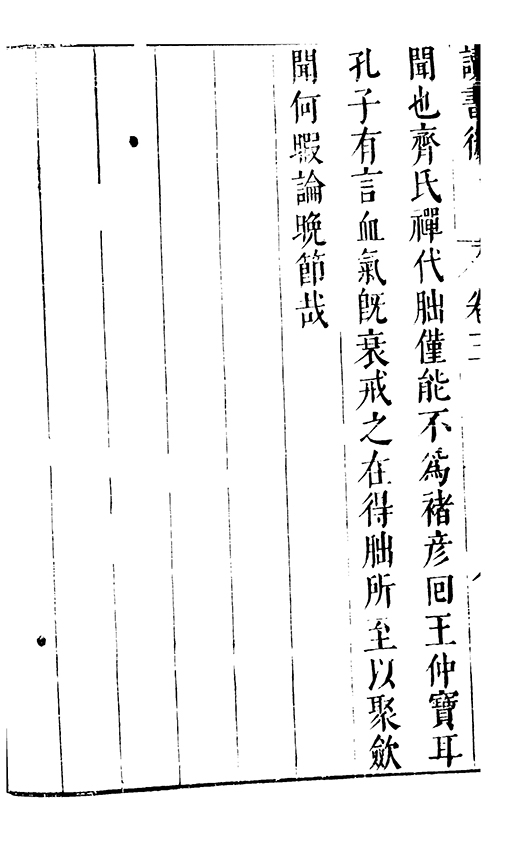 讀書後 卷三
聞也齊氏禪代朏僅能不爲褚彦回王仲寶耳
孔子有言血氣旣衰戒之在得朏所至以聚斂
聞何暇論晚節哉